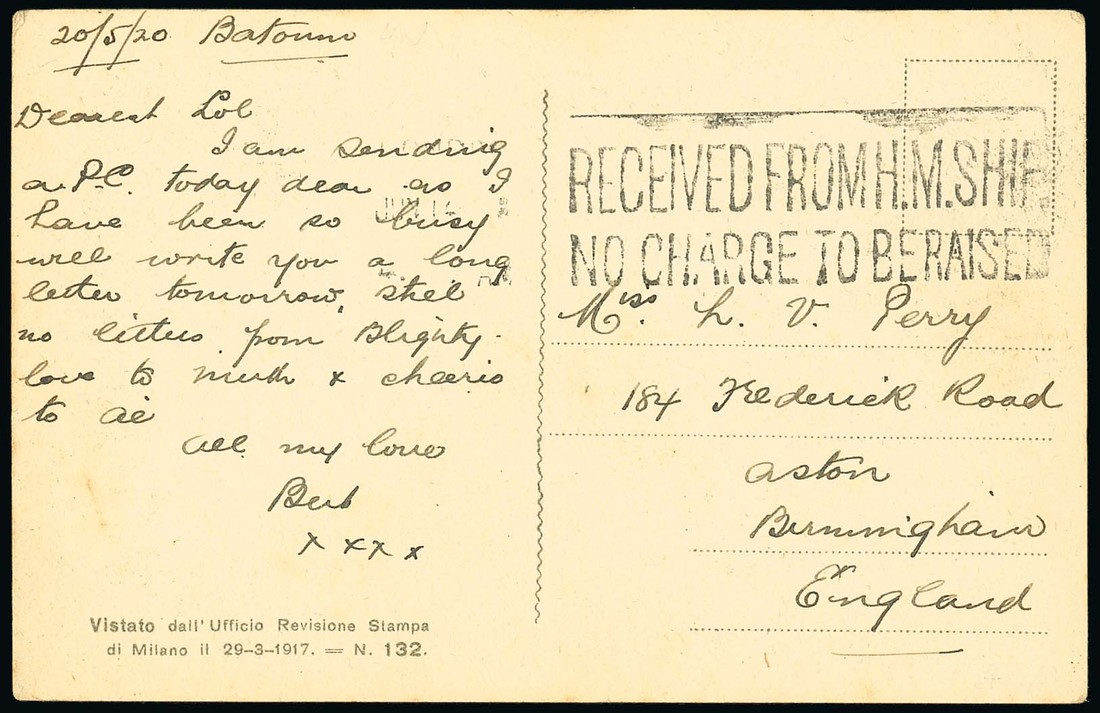 20/5/20 Batoum
Dearest Lol
I am sending
a P.C. today dear as I
have been so busy
will write you a long
letter tomorrow, still
no letters from Blighty.
love to & cheerio
to all
All my love
Bert
x x x x
Vistato dall' Ufficio Revisione Stampa
di Milano il 29-3-1917. = N. 132.
RECEIVED FROM H.M. SHIP
NO CHARGE TO BE RAISED
Miss. L. V. Perry
184 Frederick Road
Aston
Birmingham
England